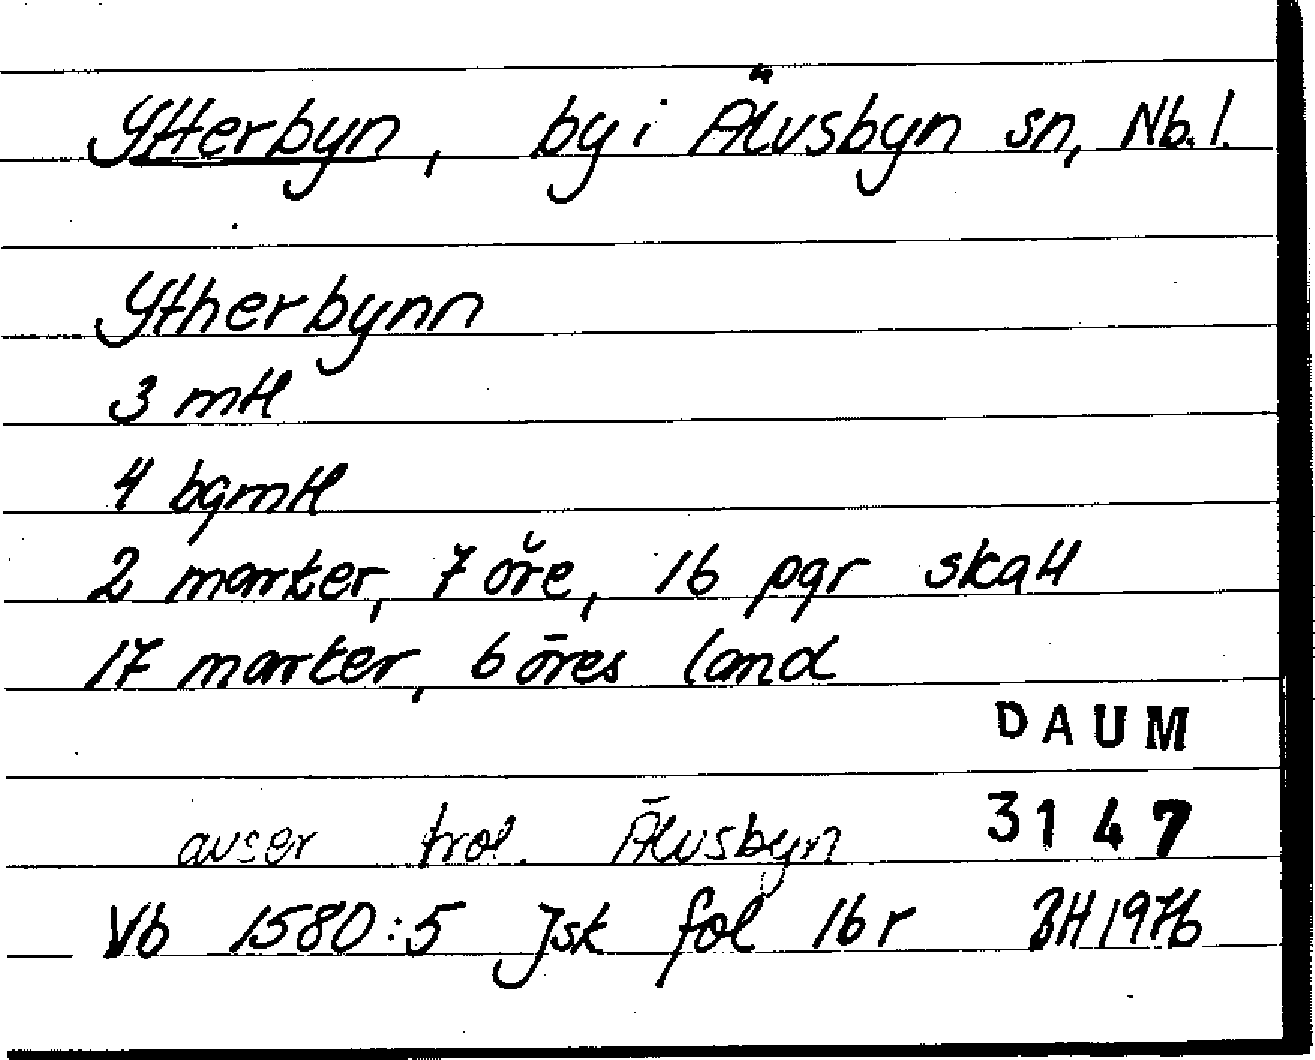 Ytterbyn, by i Älvsbyn sn, Nb. l.
Ytherbynn
3 mtl
4 bgmtl
2 marker, 7 öre, 16 pgr skatt
17 marker, 6 öres land
DAUM
avser trol. Älvsbyn 3147
Vb 1580:5 Jsk fol 16 r BH 1976